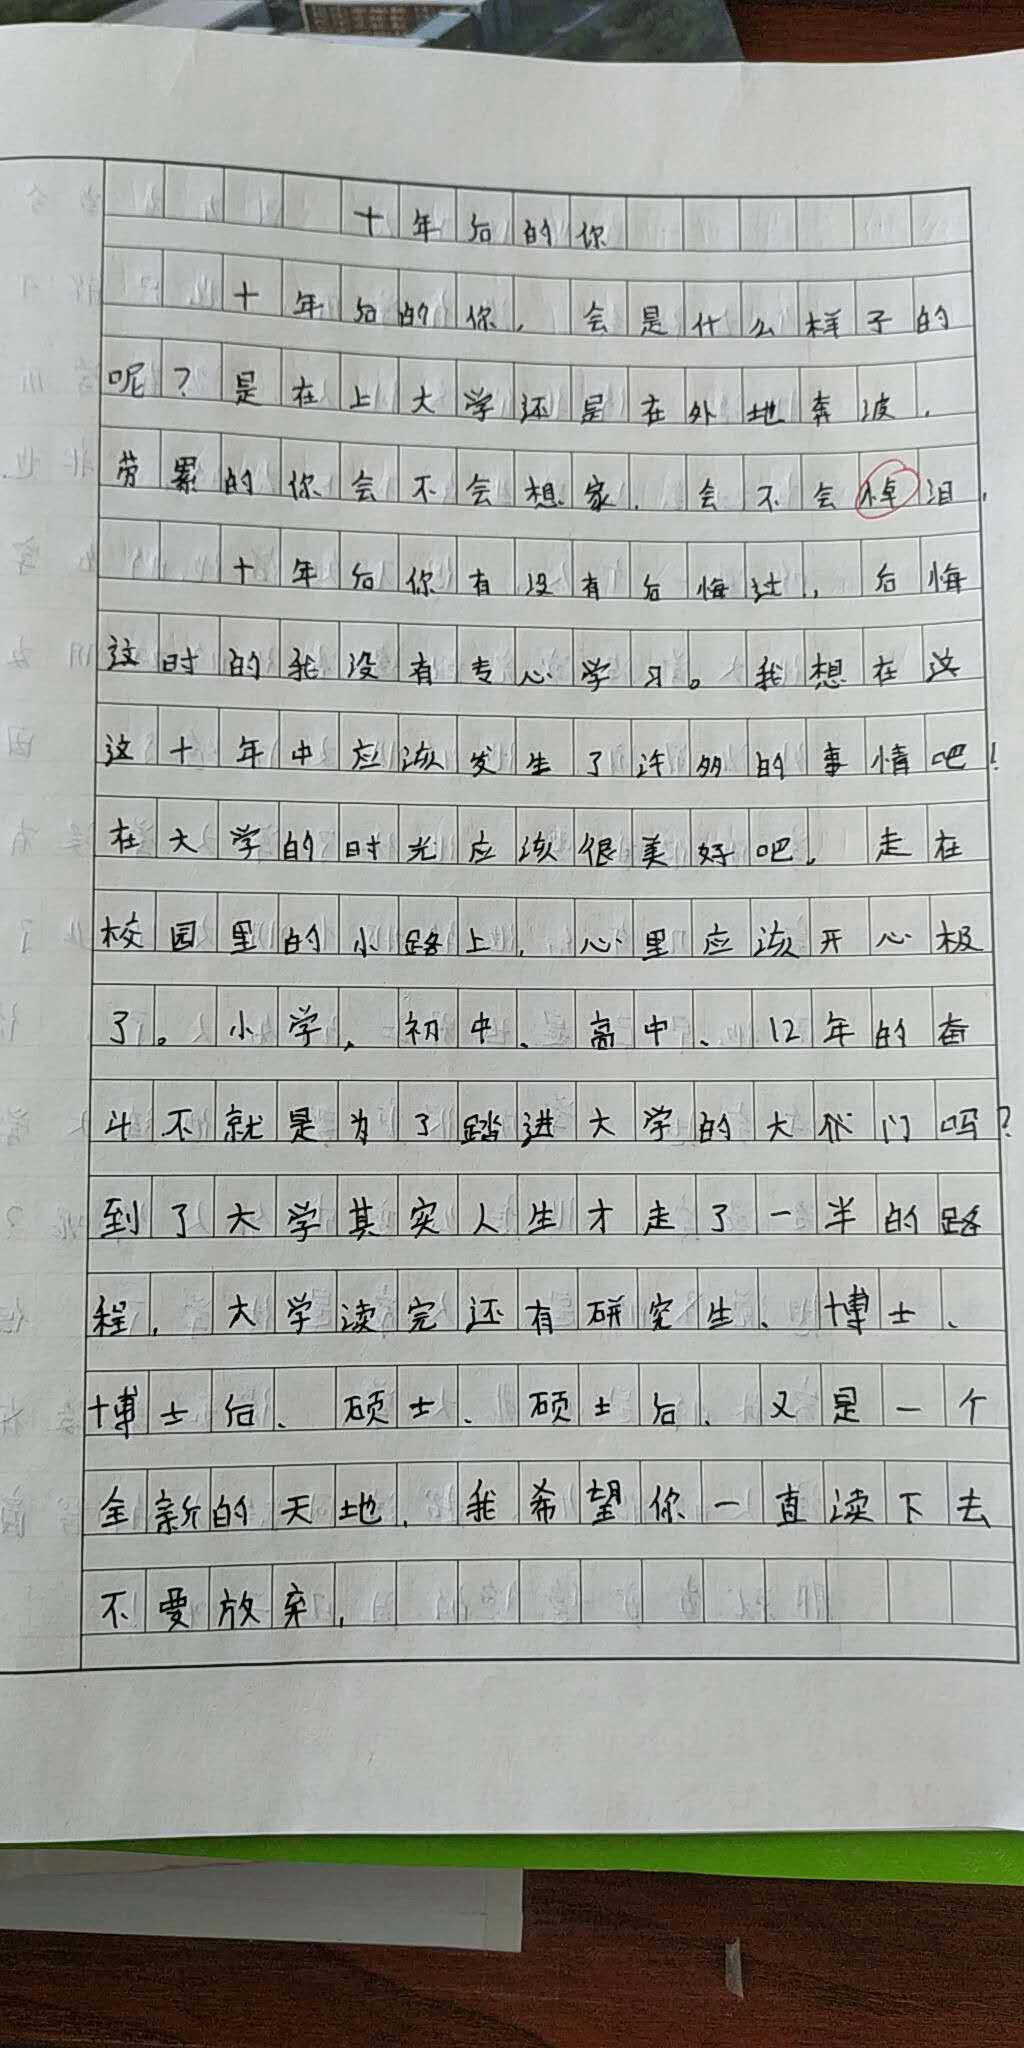 十年后的你
十年后的你，会是什么样子的
呢？是在上大学还是在外地奔波，
劳累的你会不会想家，会不会棹泪，
十年后你有没有后悔过，后悔
这时的我没有专心学习。我想在这
这十年中应该发生了许多的事情吧！
在大学的时光应该很美好吧，走在
校园里的小路上，心里应该开心极
了。小学、初中、高中、12年的奋
斗不就是为了踏进大学的大门吗？
到了大学其实人生才走了一半的路
程，大学读完还有研究生、博士、
博士后、硕士、硕士后、又是一个
全新的天地，我希望你一直读下去
不要放弃，